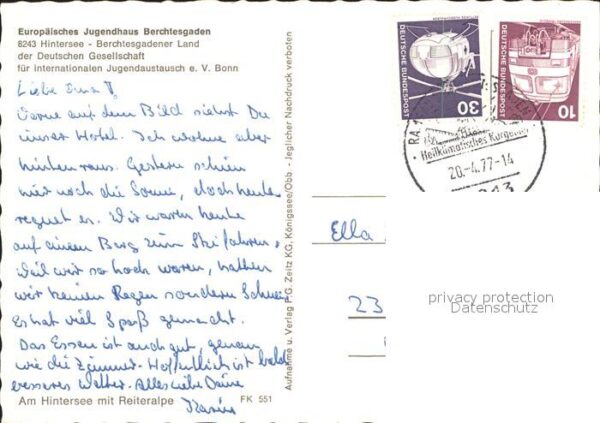 Europäisches Jugendhaus Berchtesgaden
8243 Hintersee - Berchtesgadener Land
der Deutschen Gesellschaft
für internationalen Jugendaustausch e. V. Bonn
Liebe Oma!
Vorne auf dem Bild siehst Du
unser Hotel. Ich wohne aber
hinten raus. Gestern schien
hier noch die Sonne, doch heute
regnet es. Wir waren heute
auf einem Berg zum Skifahren.
Weil wir so hoch waren, hatten
wir keinen Regen sondern Schnee.
Es hat viel Spaß gemacht.
Das Essen ist auch gut, genau
wie die Zimmer. Hoffentlich ist bald
besseres Wetter. Alles Liebe Deine
Am Hintersee mit Reiteralpe
FK 551
Aufnahme u. Verlag P.G. Zeitz KG, Königssee/Obb. - Jeglicher Nachdruck verboten
DEUTSCHE BUNDESPOST
30
DEUTSCHE BUNDESPOST
10
Heilklimatisches Kurgebiet
20.-4.77-14
Ella
23
privacy protection
Datenschutz